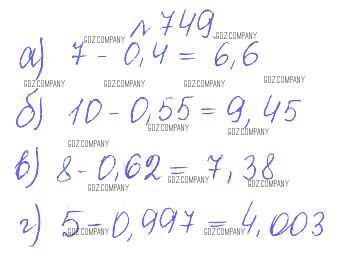 №749.
а) 7 - 0,4 = 6,6
б) 10 - 0,55 = 9,45
в) 8 - 0,62 = 7,38
г) 5 - 0,997 = 4,003
GDZ.COMPANY
GDZ.COMPANY
GDZ.COMPANY
GDZ.COMPANY
GDZ.COMPANY
GDZ.COMPANY
GDZ.COMPANY
GDZ.COMPANY
GDZ.COMPANY
GDZ.COMPANY
GDZ.COMPANY
GDZ.COMPANY
GDZ.COMPANY
GDZ.COMPANY